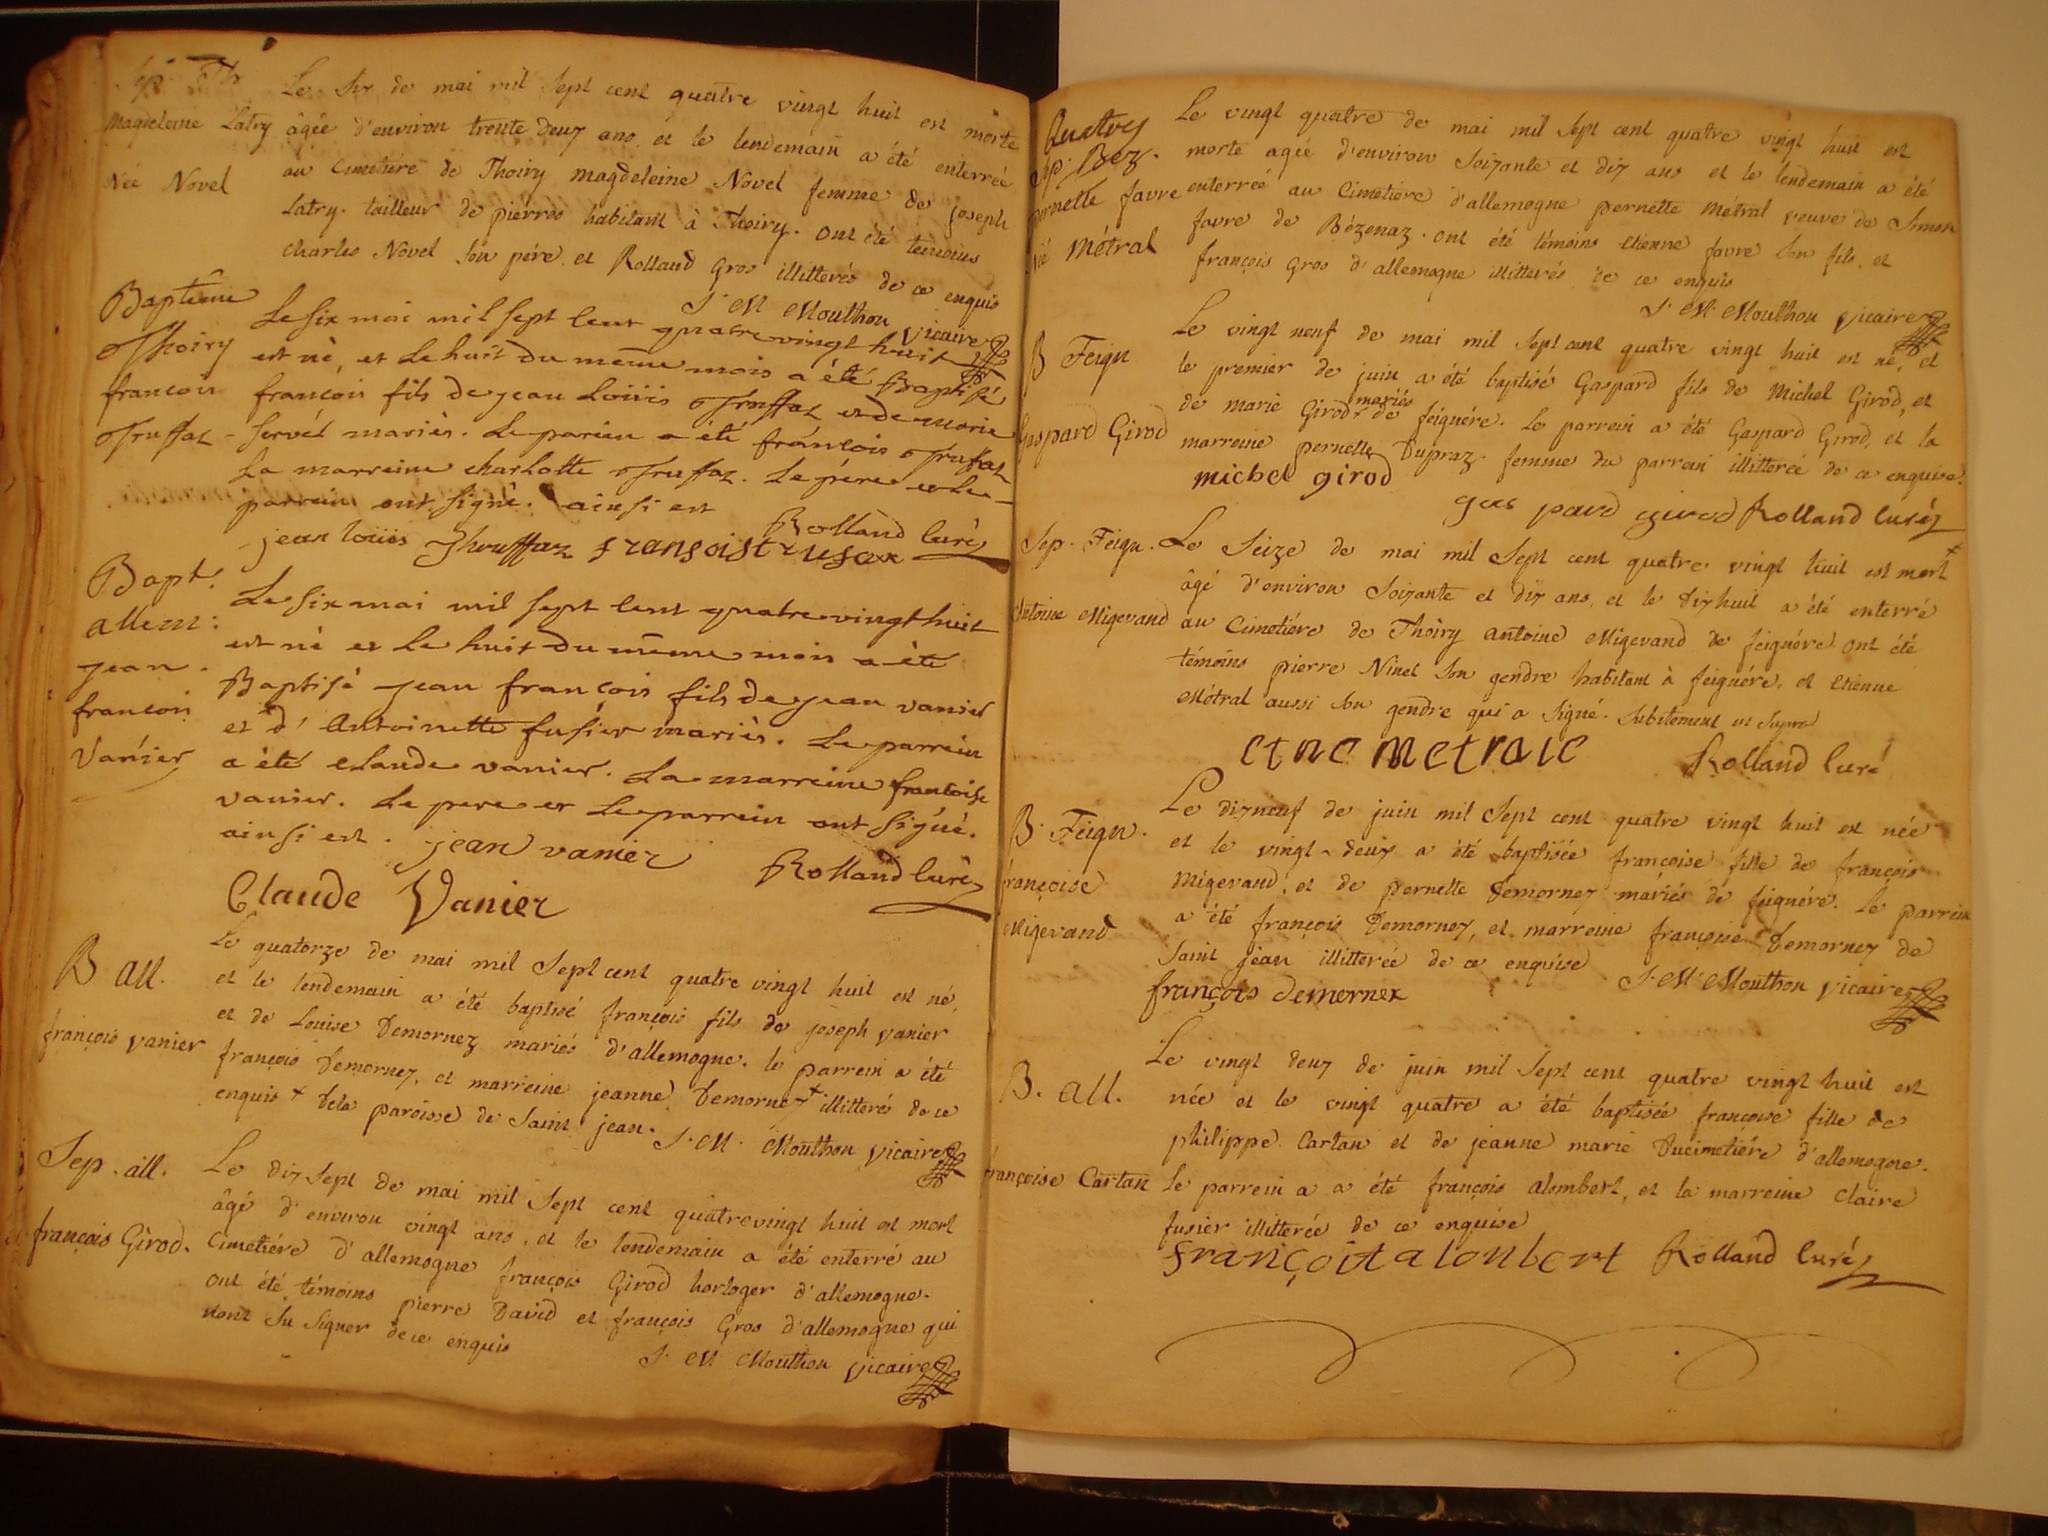 Sep. Th
Magdeleine Latry
Née Novel
Le six de mai mil sept cent quatre vingt huit est morte
âgée d'environ trente deux ans et le lendemain a été enterrée
au cimetiére de Thoiry magdeleine Novel femme de joseph
Latry tailleur de pierres habitant à Thoiry. ont été temoins
charles Novel son pére et Rolland Gros illitterés de ce enquis
J. M Mouthon vicaire
Baptême
Thoiry
francois
Truffaz
Le six mai mil sept cent quatre vingt huit
est né, et le huit du même mois a été Baptisé
francois fils de jean Loüis Truffaz et de marie
Servet mariés. Le parein a été francois Truffaz
La marreine charlotte Truffaz. Le père et le
parrein ont signé. ainsi est
Rolland curé
jean loüis Thruffaz fransois trufax
Bapt.
allem:
jean
francois
Vanier
Le six mai mil sept cent quatre vingt huit
est né et le huit du même mois a été
Baptisé jean françois fils de jean vanier
et d'Antoinette fusier mariés. Le parrein
a été claude vanier. La marreine francoise
vanier. Le pere et le parrein ont signé.
ainsi est. jean vanier
Rolland curé
Claude Vanier
B all.
françois vanier
Le quatorze de mai mil sept cent quatre vingt huit est né,
et le lendemain a été baptisé françois fils de joseph vanier
et de Louise Demornex mariés d'allemogne. le parrein a été
françois Demornex, et marreine jeanne Demornex + illitterés de ce
enquis + dela paroisse de Saint jean. J. M. Mouthon vicaire
Sep. all.
françois Girod.
Le dix sept de mai mil sept cent quatrevingt huit est mort
âgé d'environ vingt ans, et le lendemain a été enterré au
cimetiére d'allemogne françois Girod horloger d'allemogne.
ont été témoins pierre David et françois Gros d'allemogne qui
nont su signer de ce enquis
J. M Mouthon vicaire
Quatrez
Sep. Bez.
pernette favre
née Métral
Le vingt quatre de mai mil sept cent quatre vingt huit est
morte agée d'environ soixante et dix ans et le lendemain a été
enterreé au cimetiére d'allemogne pernette métral veuve de Simon
favre de Bézenaz. ont été témoins etienne favre son fils, et
françois Gros d'allemogne illitterés de ce enquis
J. M. Mouthon vicaire
B Feign
Gaspard Girod
Le vingt neuf de mai mil sept cent quatre vingt huit est né, et
le premier de juin a été baptisé Gaspard fils de Michel Girod, et
de marie Girod mariés de feignére. Le parrein a été Gaspard Girod, et la
marreine pernette Dupraz femme du parrein illitterée de ce enquise.
michel girod
gas pard girod Rolland curé
Sep. Feign.
Antoine Migevand
Le seize de mai mil sept cent quatre vingt huit est mort +
âgé d'environ soixante et dix ans, et le dixhuit a été enterré
au cimetiére de Thoiry antoine Migevand de feignére ont été
témoins pierre Ninet son gendre habitant à feignére, et etienne
Métral aussi son gendre qui a signé. subitement ut supra
etne metrale
Rolland curé
B. Feign.
françoise
Migevand
Le dixneuf de juin mil sept cent quatre vingt huit est née
et le vingt-deux a été baptisée françoise fille de françois
Migevand, et de pernette Demornex mariés de feignére. Le parrein
a été françois Demornex, et marreine françoise Demornex de
Saint jean illitterée de ce enquise
J. M. Mouthon vicaire
françois demornex
B. all.
françoise Cartan
Le vingt deux de juin mil sept cent quatre vingt huit est
née et le vingt quatre a été baptisée francoise fille de
philippe Cartan et de jeanne marie Ducimetiére d'allemogne.
Le parrein a a été françois alombert, et la marreine claire
fusier illitterée de ce enquise
françoit alonbert Rolland curé